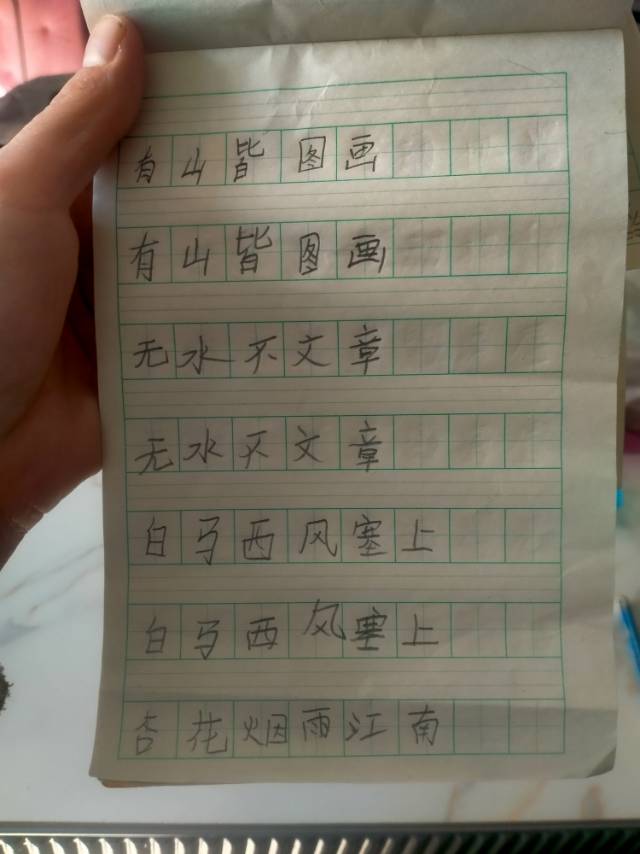 有山皆图画
有山皆图画
无水不文章
无水不文章
白马西风塞上
白马西风塞上
杏花烟雨江南